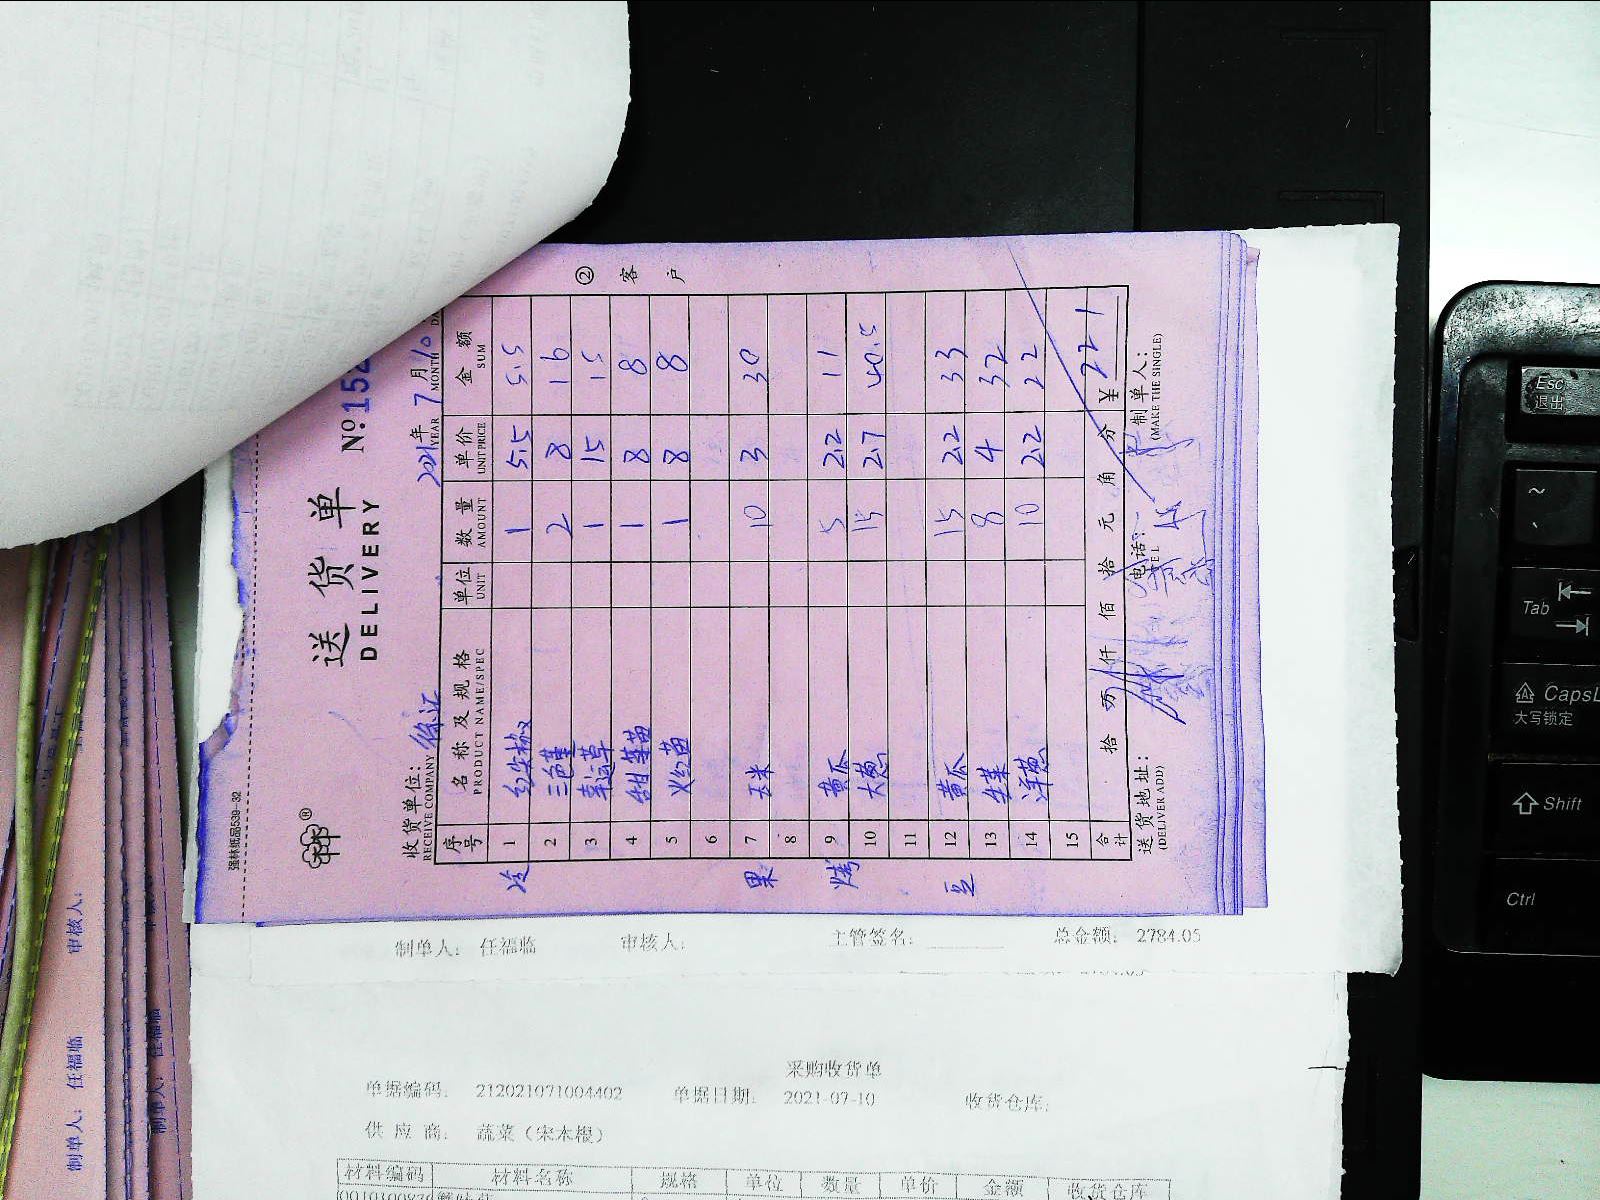 强林纸品539-32
®
送货单
DELIVERY
№:152
收货单位: 徐汇
RECEIVE COMPANY
2021年 7月10
YEAR MONTH DA
② 客户
序号 名称及规格 单位 数量 单价 金额
PRODUCT NAME/SPEC UNIT AMOUNT UNIT PRICE SUM
冷 1 红尖椒 1 5.5 5.5
2 三色堇 2 8 16
3 1 15 15
4 甜菜苗 1 8 8
5 1 8 8
6
果 7 玉米 10 3 30
8
烤 9 黄瓜 5 2.2 11
10 大葱 15 2.7 40.5
11
豆 12 黄瓜 15 2.2 33
13 生菜 8 4 32
14 洋葱 10 2.2 22
15
合计 拾 万 仟 佰 拾 元 角 分 ¥ 221
送货地址: 电话: 制单人:
(DELIVER ADD) TEL (MAKE THE SINGLE)
制单人: 任福临 审核人: 主管签名: 总金额: 2784.05
采购收货单
单据编码: 212021071004402 单据日期: 2021-07-10 收货仓库:
供应商: 蔬菜（宋本根）
材料编码 材料名称 规格 单位 数量 单价 金额 收货仓库
制单人: 任福临 审核人:
制单人: 任福临
Esc
退出
~
Tab
CapsL
大写锁定
Shift
Ctrl